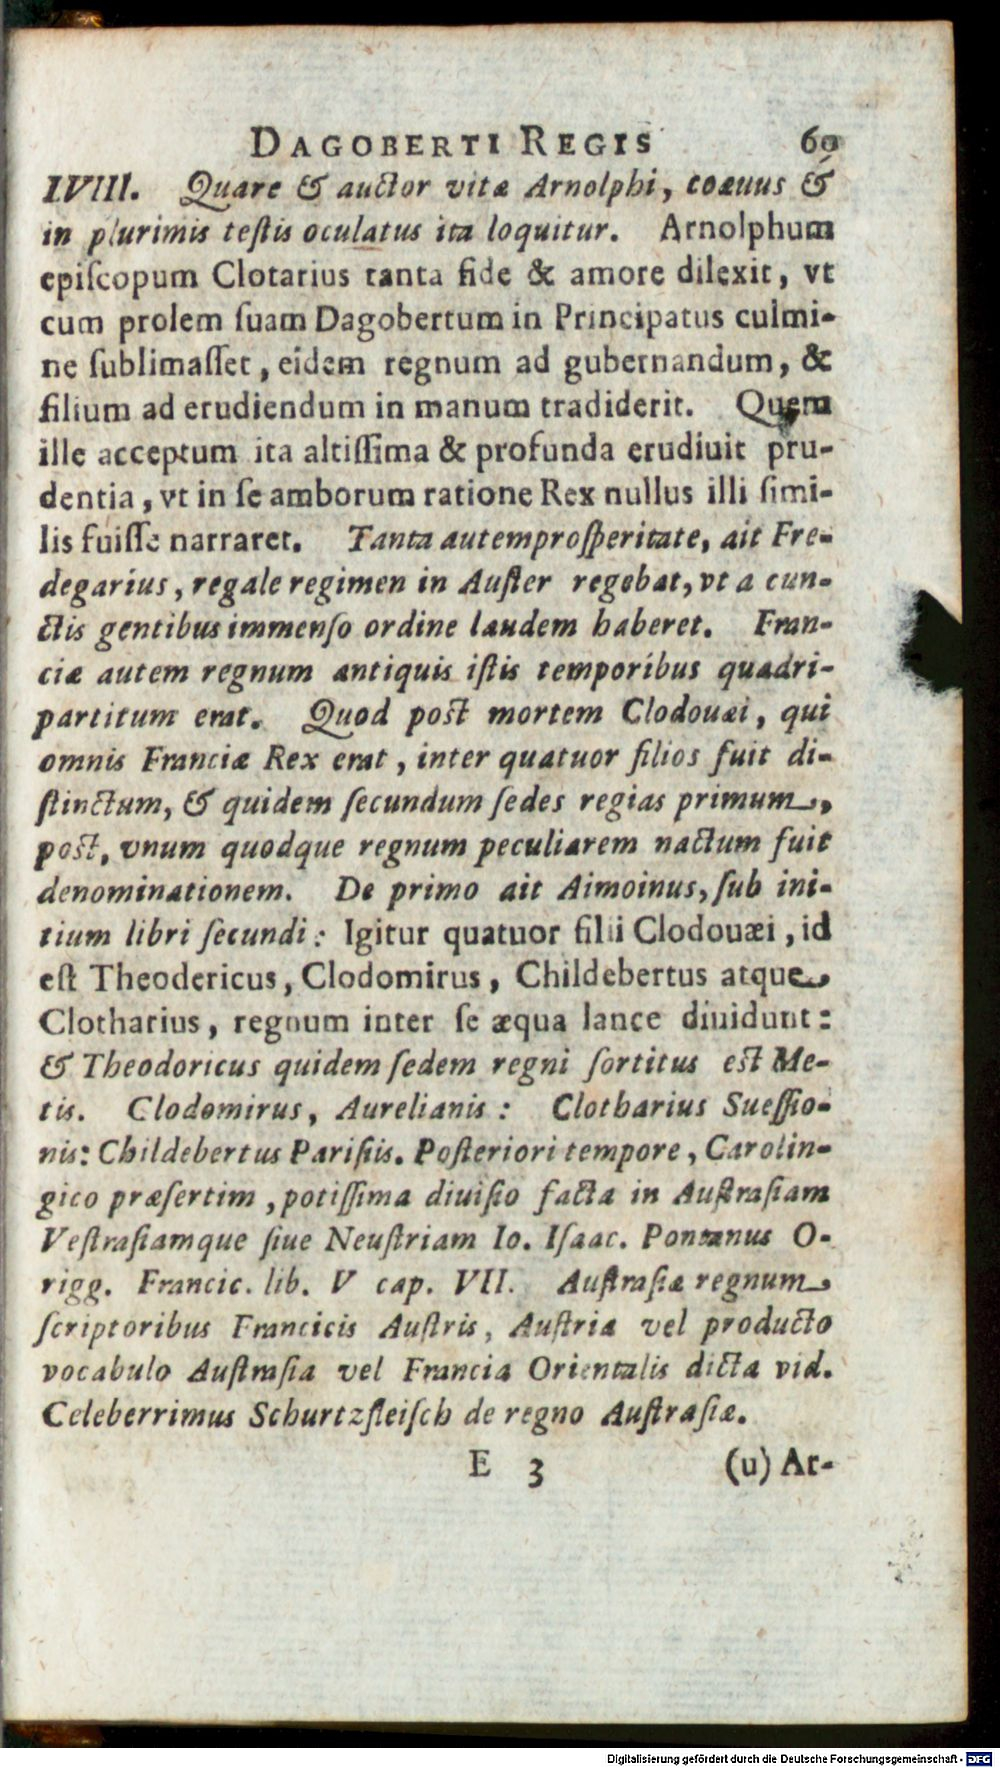 DAGOBERTI REGIS 69
LVIII. Quare & auctor vitæ Arnolphi, coæuus &
in plurimis teſtis oculatus ita loquitur. Arnolphum
epiſcopum Clotarius tanta fide & amore dilexit, vt
cum prolem ſuam Dagobertum in Principatus culmi-
ne ſublimaſſet, eidem regnum ad gubernandum, &
filium ad erudiendum in manum tradiderit. Quem
ille acceptum ita altiſſima & profunda erudiuit pru-
dentia, vt in ſe amborum ratione Rex nullus illi ſimi-
lis fuiſſe narraret. Tanta autem proſperitate, ait Fre-
degarius, regale regimen in Auſter regebat, vt a cun-
ctis gentibus immenſo ordine laudem haberet. Fran-
ciæ autem regnum antiquis iſtis temporibus quadri-
partitum erat. Quod poſt mortem Clodouæi, qui
omnis Franciæ Rex erat, inter quatuor filios fuit di-
ſtinctum, & quidem ſecundum ſedes regias primum,
poſt, vnum quodque regnum peculiarem nactum fuit
denominationem. De primo ait Aimoinus, ſub ini-
tium libri ſecundi: Igitur quatuor filii Clodouæi, id
eſt Theodericus, Clodomirus, Childebertus atque
Clotharius, regnum inter ſe æqua lance diuidunt:
& Theodoricus quidem ſedem regni ſortitus eſt Me-
tis. Clodomirus, Aurelianis: Clotharius Sueſſio-
nis: Childebertus Pariſiis. Poſteriori tempore, Carolin-
gico præſertim, potiſſima diuiſio facta in Auſtraſiam
Veſtraſiamque ſiue Neuſtriam Io. Iſaac. Pontanus O-
rigg. Francic. lib. V cap. VII. Auſtraſiæ regnum
ſcriptoribus Francicis Auſtris, Auſtria vel producto
vocabulo Auſtraſia vel Francia Orientalis dicta vid.
Celeberrimus Schurtzfleiſch de regno Auſtraſiæ.
E 3 (u) Ar-
Digitalisierung gefördert durch die Deutsche Forschungsgemeinschaft - DFG